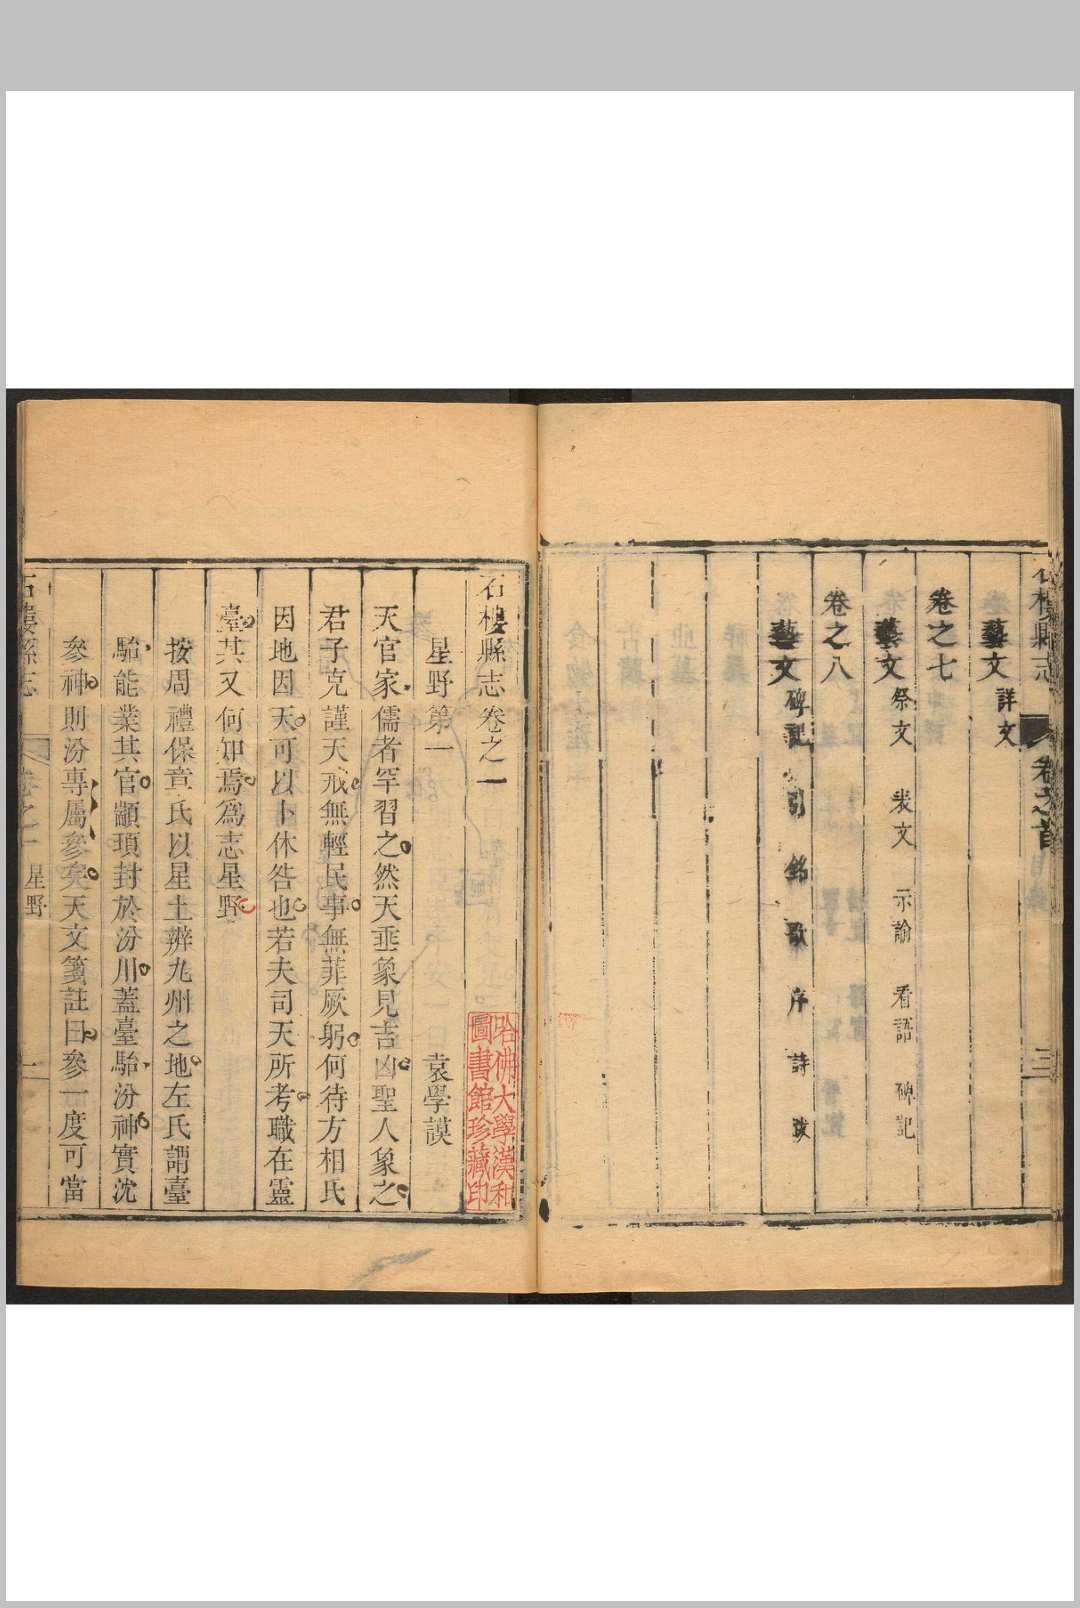 石樓縣志 卷之首 三
藝文 詳文
卷之七
藝文 祭文 表文 示諭 看語 碑記
卷之八
藝文 碑記 引 銘 歌 序 詩 跋
石樓縣志卷之一
星野第一 袁學謨
天官家儒者罕習之然天垂象見吉凶聖人象之
君子克謹天戒無輕民事無菲厥躬何待方相氏
因地因天可以卜休咎也若夫司天所考職在靈
臺其又何知焉為志星野
按周禮保章氏以星土辨九州之地左氏謂臺
駘能業其官顓頊封於汾川蓋臺駘汾神實沈
參神則汾專屬參矣天文箋註曰參一度可當
石樓縣志 卷之一 星野 一
哈佛大學漢和
圖書館珍藏印